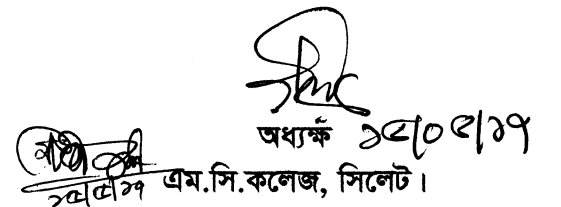 অধ্যক্ষ ১৫/০৫/১৭
১৫/৫/১৭ এম.সি.কলেজ, সিলেট।